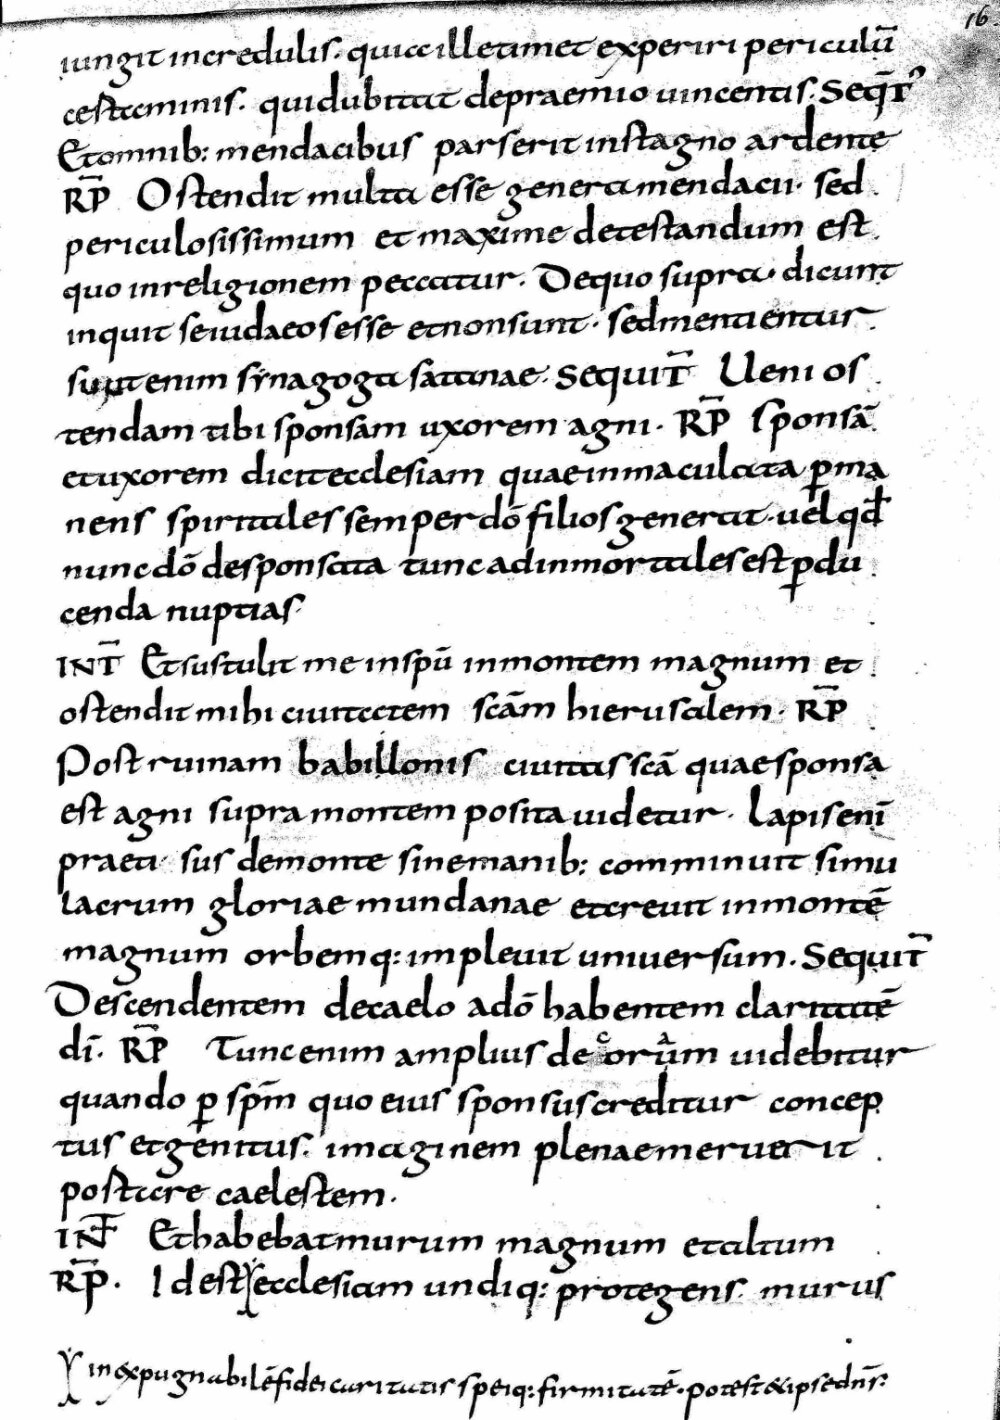 16.
iungit incredulis. quia ille timet experiri periculū
certaminis. qui dubitat de praemio uincentis. Seqt̄
Et omnib: mendacibus pars erit in stagno ardente
RP̄ Ostendit multa esse genera mendacii. sed
periculosissimum et maxime detestandum est
quo in religionem peccatur. De quo supra. dicunt
inquit se iudaeos esse et non sunt. sed mentientur
sunt enim synagoga satanae. Sequit̄ Ueni os
tendam tibi sponsam uxorem agni. RP̄ Sponsā
et uxorem dicit ecclesiam quae inmaculata ꝑma
nens spiritales semper dō filios generat. uel qđ
nunc dō desponsata tunc ad inmortales est ꝑdu
cenda nuptias
INT̄ Et sustulit me in spū in montem magnum et
ostendit mihi ciuitatem scām hierusalem. RP̄
Post ruinam babillonis ciuitas scā quae sponsa
est agni supra montem posita uidetur. Lapis enī
praeci sus de monte sine manib: comminuit simu
lacrum gloriae mundanae et creuit in montē
magnum orbemq: impleuit uniuersum. Sequit̄
Descendentem de caelo a dō habentem claritatē
dī. RP̄ Tunc enim amplius decorum uidebitur
quando ꝑ spm̄ quo eius sponsus creditur concep
tus et genitus. imaginem plenae meruerit
postare caelestem.
INT̄ Et habebat murum magnum et altum
RP̄. Id est ecclesiam undiq: protegens. murus
inexpugnabilē fidei caritatis speiq: firmitatē. potest & ipse dn̄s: